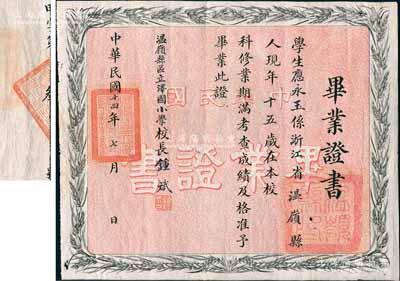 畢業證書
學生應永玉係浙江省溫嶺縣
人現年十五歲在本校
科修業期滿考查成績及格准予
畢業此證
溫嶺縣區立澤國小學校長鍾斌
中華民國十四年七月 日
畢業證書